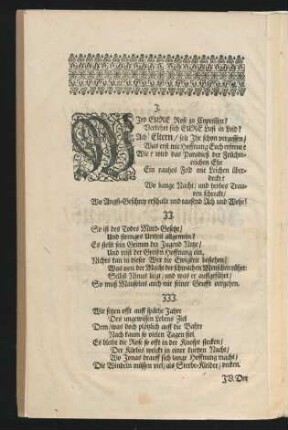 3.
WIrd EURE Rose zu Cypressen?
Verkehrt sich EURE Lust in Leid?
Ach Eltern/ seit Ihr schon vergessen/
Was erst mit Hoffnung Euch erfreut?
Wie? wird das Paradieß der Früchte-
reichen Ehe
Ein rauhes Feld mit Leichen über-
deckt?
Wie bange Nacht/ und herbes Trau-
ren schreckt/
Wo Angst-Geschrey erschallt und tausend Ach und Wehe!
33
So ist des Todes Mord-Gesetz/
Und strenges Urtheil allgemein?
Es stellt sein Grimm der Jugend Netze/
Und reist der Greisen Hoffnung ein.
Nichts kan in dieser Welt die Ewigkeit bestehen/
Was nur der Macht der schwachen Menschen rührt
Selbst Ninus liegt/ und was er aufgeführt/
So muß Mausolus auch mit seiner Grufft vergehen.
333
Wir setzen offt auff späthe Jahre
Des ungewissen Lebens Ziel
Dem/ was doch plötzlich auff die Bahre
Nach kaum so vielen Tagen fiel
Es bleibt die Rose so offt in der Knospe stecken/
Der Kürbis welckt in einer kurtzen Nacht/
Wo Jonas drauff sich lange Hoffnung macht/
Die Windeln müssen viel/ als Sterbe-Kleider/ decken.
JV. Der